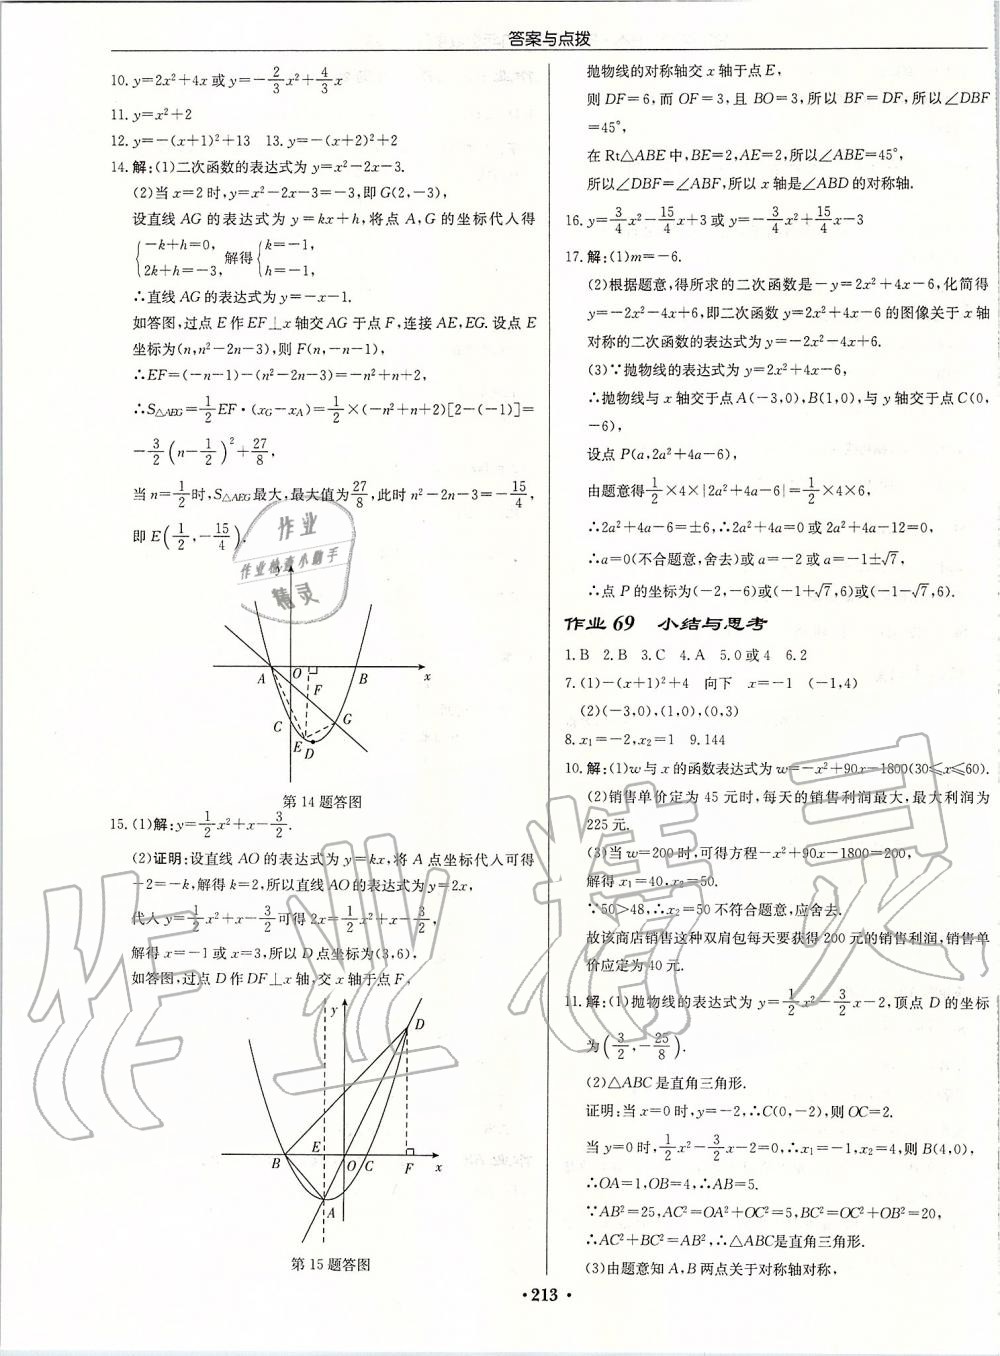 答案与点拨
10. y=2x²+4x 或 y=-2/3x²+4/3x
11. y=x²+2
12. y=-(x+1)²+13 13. y=-(x+2)²+2
14. 解:(1)二次函数的表达式为 y=x²-2x-3.
(2)当 x=2 时,y=x²-2x-3=-3,即 G(2,-3),
设直线 AG 的表达式为 y=kx+h,将点 A,G 的坐标代入得
{-k+h=0, 2k+h=-3, 解得 {k=-1, h=-1.
∴直线 AG 的表达式为 y=-x-1.
如答图,过点 E 作 EF⊥x 轴交 AG 于点 F,连接 AE,EG. 设点 E
坐标为(n,n²-2n-3),则 F(n,-n-1),
∴EF=(-n-1)-(n²-2n-3)=-n²+n+2,
∴S△AEG=1/2EF·(xG-xA)=1/2×(-n²+n+2)[2-(-1)]=
-3/2(n-1/2)²+27/8,
当 n=1/2时,S△AEG最大,最大值为27/8,此时 n²-2n-3=-15/4,
即 E(1/2,-15/4).
作业
作业检查小助手
精灵
y
A O F B x
C G
E D
第 14 题答图
15. (1)解:y=1/2x²+x-3/2.
(2)证明:设直线 AO 的表达式为 y=kx,将 A 点坐标代入可得
-2=-k,解得 k=2,所以直线 AO 的表达式为 y=2x,
代入 y=1/2x²+x-3/2可得 2x=1/2x²+x-3/2,
解得 x=-1 或 x=3,所以 D 点坐标为(3,6),
如答图,过点 D 作 DF⊥x 轴,交 x 轴于点 F,
y
D
B E O C F x
A
第 15 题答图
抛物线的对称轴交 x 轴于点 E,
则 DF=6,而 OF=3,且 BO=3,所以 BF=DF,所以∠DBF
=45°,
在 Rt△ABE 中,BE=2,AE=2,所以∠ABE=45°,
所以∠DBF=∠ABF,所以 x 轴是∠ABD 的对称轴.
16. y=3/4x²-15/4x+3 或 y=-3/4x²+15/4x-3
17. 解:(1)m=-6.
(2)根据题意,得所求的二次函数是-y=2x²+4x-6,化简得
y=-2x²-4x+6,即二次函数 y=2x²+4x-6 的图像关于 x 轴
对称的二次函数的表达式为 y=-2x²-4x+6.
(3)∵抛物线的表达式为 y=2x²+4x-6,
∴抛物线与 x 轴交于点 A(-3,0),B(1,0),与 y 轴交于点 C(0,
-6),
设点 P(a,2a²+4a-6),
由题意得1/2×4×|2a²+4a-6|=1/2×4×6,
∴2a²+4a-6=±6,∴2a²+4a=0 或 2a²+4a-12=0,
∴a=0(不合题意,舍去)或 a=-2 或 a=-1±√7,
∴点 P 的坐标为(-2,-6)或(-1+√7,6)或(-1-√7,6).
作业 69 小结与思考
1. B 2. B 3. C 4. A 5. 0 或 4 6. 2
7. (1)-(x+1)²+4 向下 x=-1 (-1,4)
(2)(-3,0),(1,0),(0,3)
8. x₁=-2,x₂=1 9. 144
10. 解:(1)w 与 x 的函数表达式为 w=-x²+90x-1800(30≤x≤60).
(2)销售单价定为 45 元时,每天的销售利润最大,最大利润为
225 元.
(3)当 w=200 时,可得方程-x²+90x-1800=200,
解得 x₁=40,x₂=50.
∵50>48,∴x₂=50 不符合题意,应舍去.
故该商店销售这种双肩包每天要获得 200 元的销售利润,销售单
价应定为 40 元.
11. 解:(1)抛物线的表达式为 y=1/2x²-3/2x-2,顶点 D 的坐标
为(3/2,-25/8).
(2)△ABC 是直角三角形.
证明:当 x=0 时,y=-2,∴C(0,-2),则 OC=2.
当 y=0 时,1/2x²-3/2x-2=0,∴x₁=-1,x₂=4,则 B(4,0),
∴OA=1,OB=4,∴AB=5.
∵AB²=25,AC²=OA²+OC²=5,BC²=OC²+OB²=20,
∴AC²+BC²=AB²,∴△ABC是直角三角形.
(3)由题意知 A,B 两点关于对称轴对称,
作业精灵
·213·